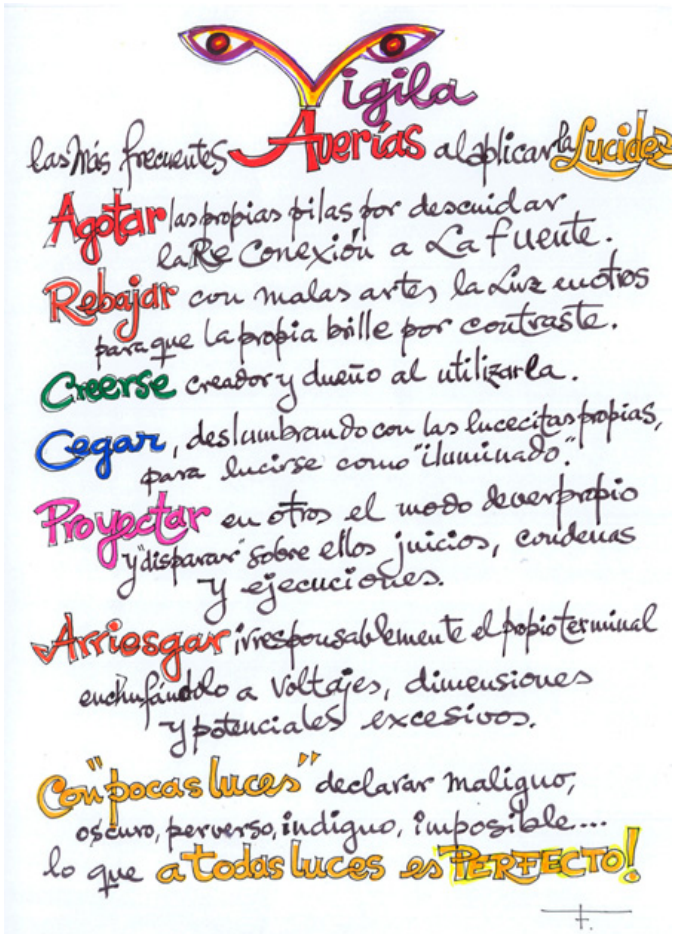 Vigila
las Más frecuentes Averías al aplicar la Lucidez
Agotar las propias pilas por descuidar
la Re Conexión a La fuente.
Rebajar con malas artes la Luz en otros
para que la propia brille por contraste.
Creerse creador y dueño al utilizarla.
Cegar, deslumbrando con las lucecitas propias,
para lucirse como "iluminado".
Proyectar en otros el modo de ver propio
y "disparar" sobre ellos juicios, condenas
y ejecuciones.
Arriesgar irresponsablemente el popio terminal
enchufándolo a voltajes, dimensiones
y potenciales excesivos.
Con "pocas luces" declarar maligno,
oscuro, perverso, indigno, imposible...
lo que a todas luces es PERFECTO!
F.